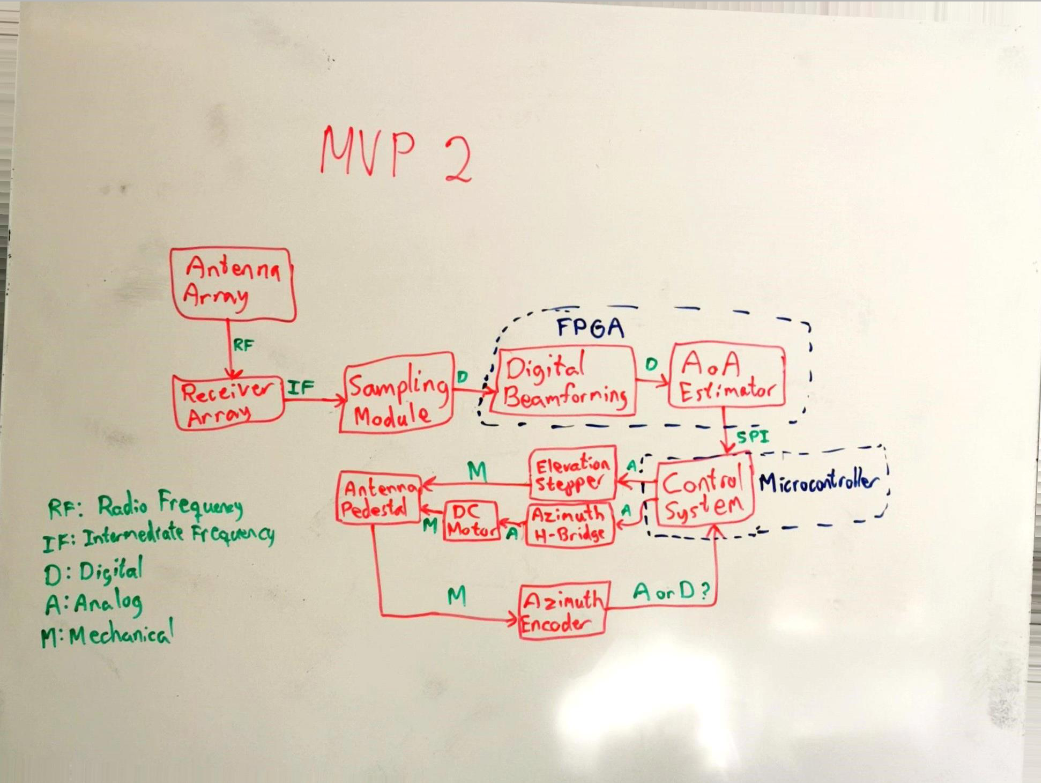 MVP 2
Antenna
Array
RF
Receiver
Array
IF
Sampling
Module
D
FPGA
Digital
Beamforming
D
AoA
Estimator
SPI
Control
System
Microcontroller
A
Elevation
Stepper
M
A
Azimuth
H-Bridge
A
DC
Motor
M
Antenna
Pedestal
M
Azimuth
Encoder
A or D?
RF: Radio Frequency
IF: Intermediate Frequency
D: Digital
A: Analog
M: Mechanical